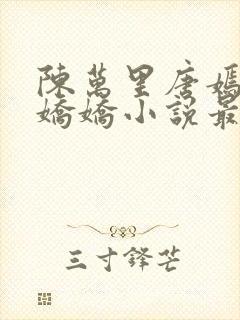 陳萬里唐嫣
嬌嬌小說最
三寸鋒芒